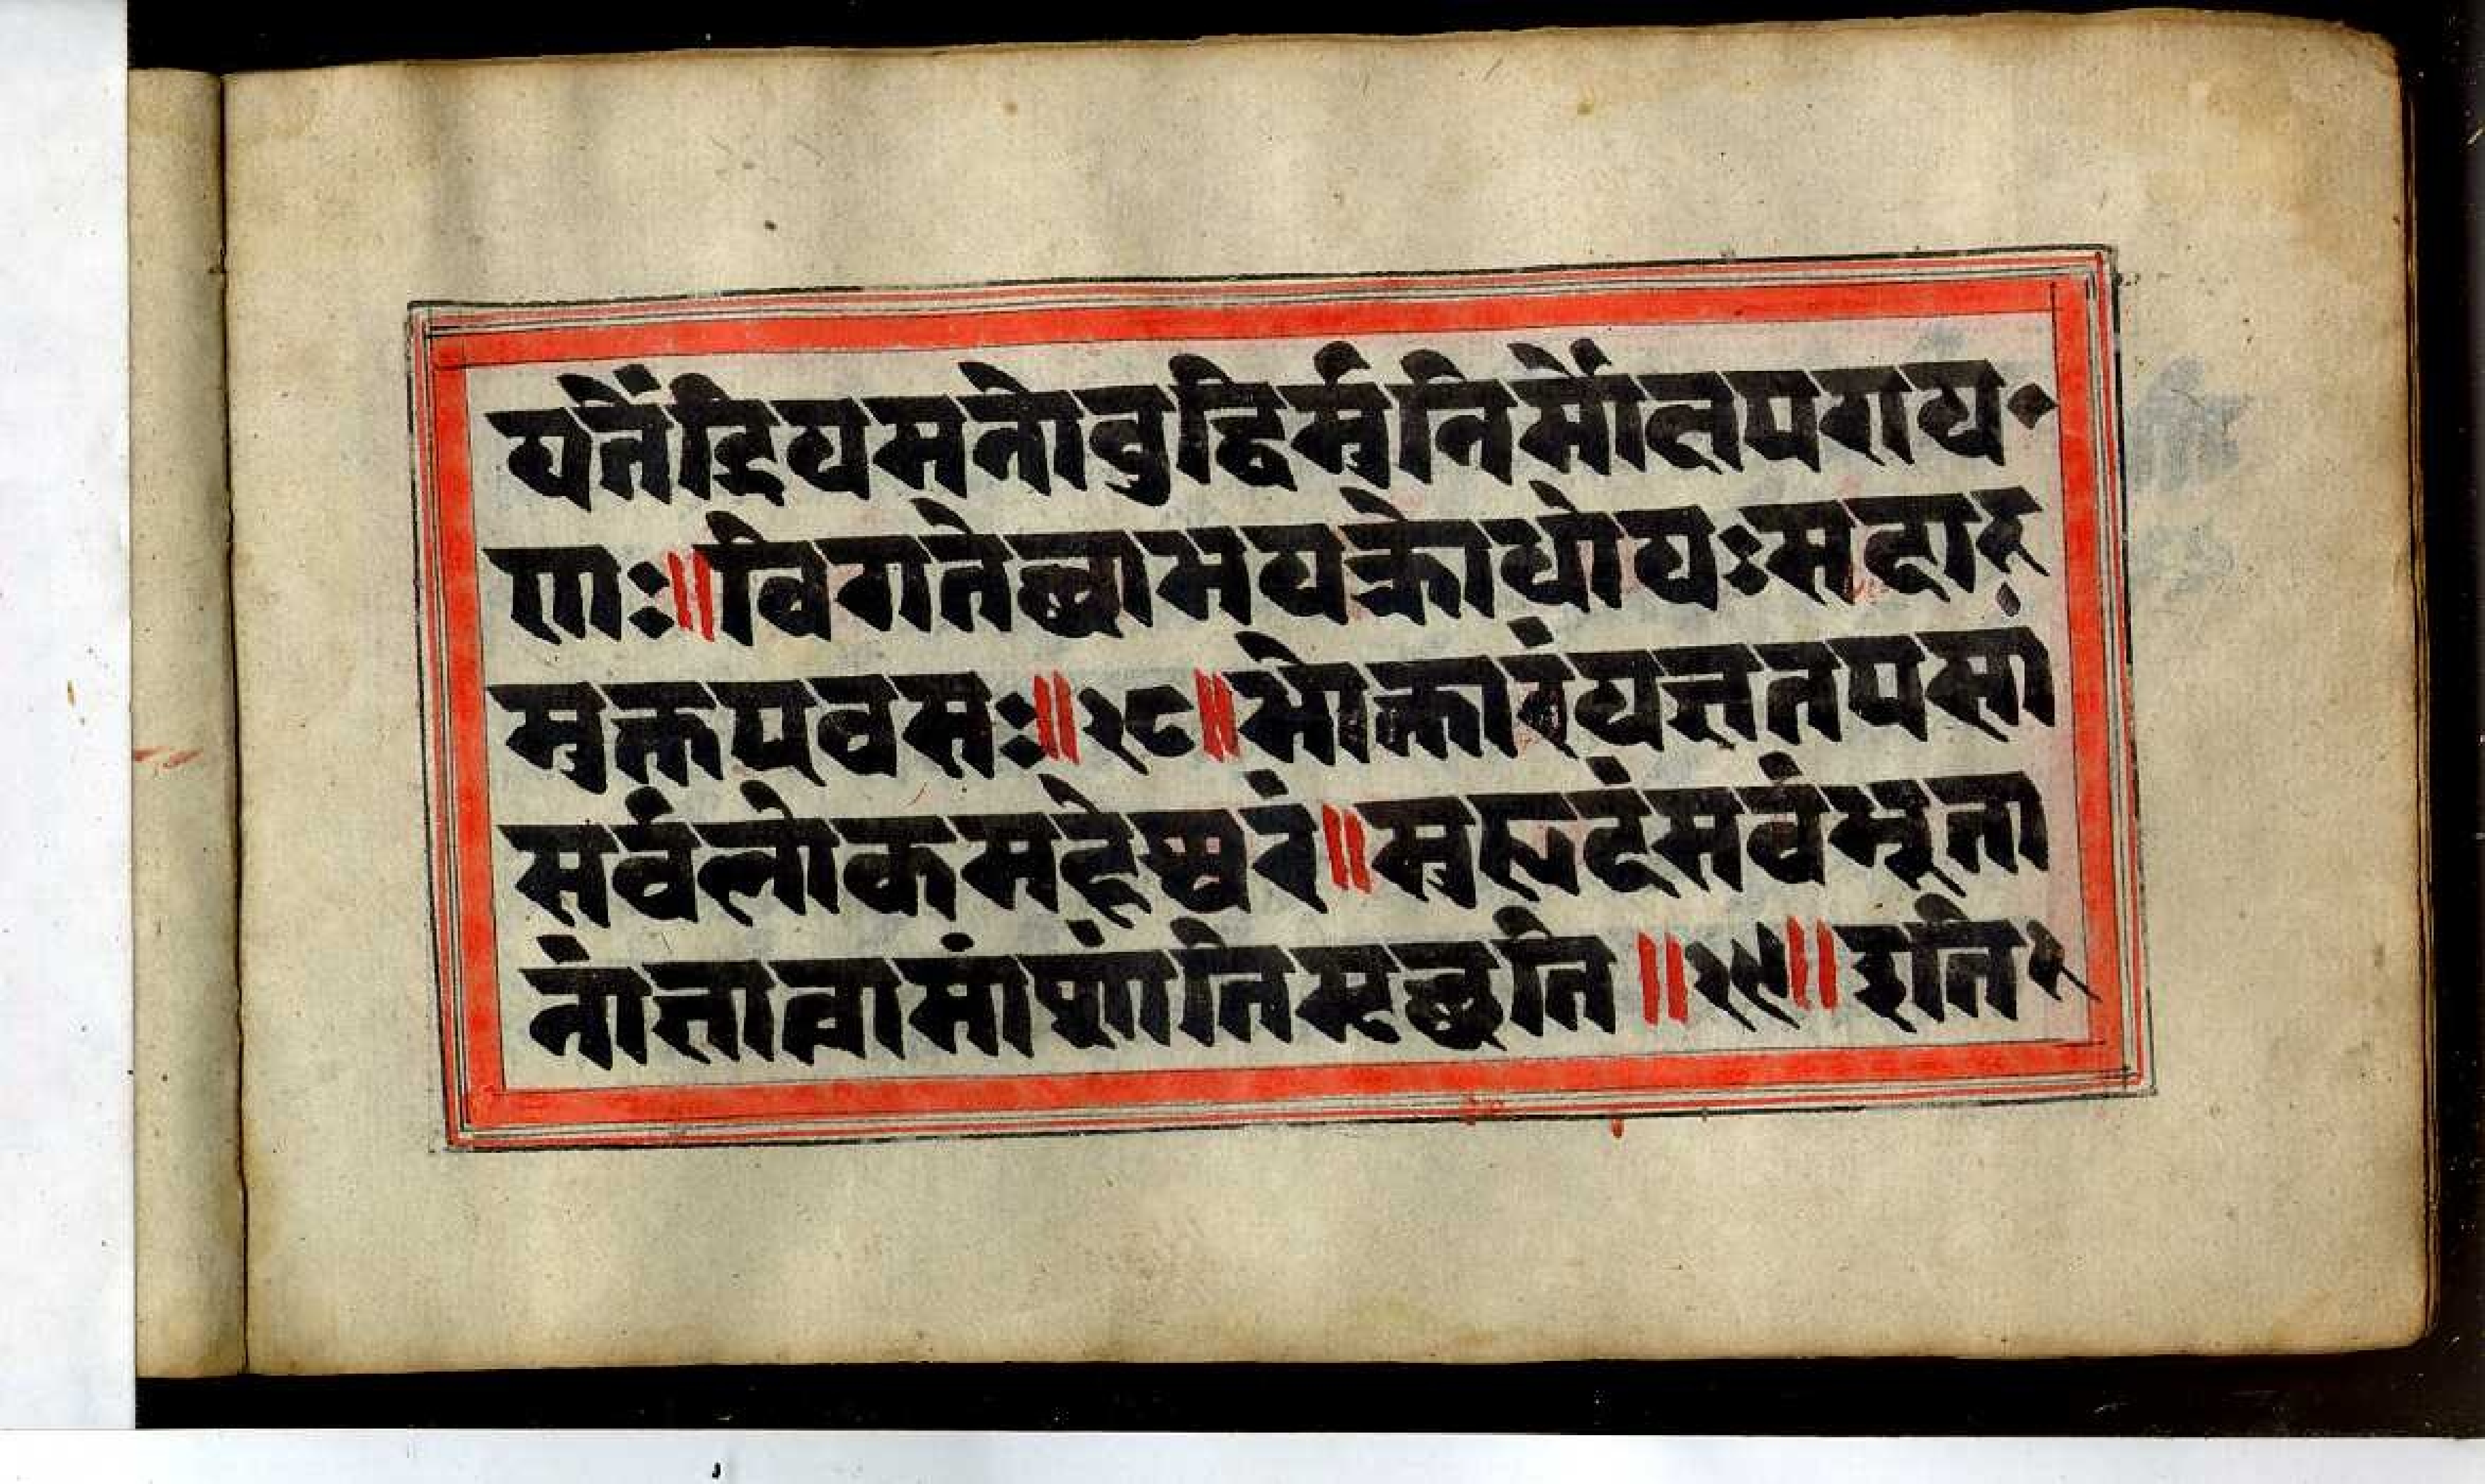 यतेंद्रियमनोबुद्धिर्मुनिर्मोक्षपराय
णः॥विगतेच्छाभयक्रोधोयःसदामु
मुक्तएवसः॥२८॥भोक्तारंयज्ञतपसां
सर्वलोकमहेश्वरं॥सुहृदंसर्वभूता
नांज्ञात्वामांशांतिमृच्छति॥२९॥इति